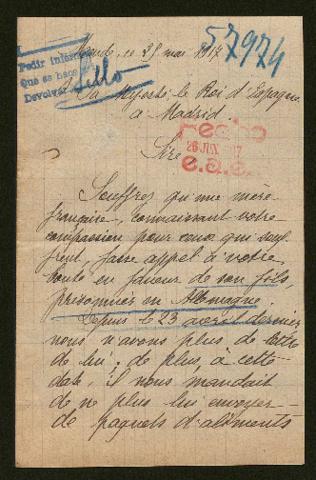 57974
Pedir informe
que se hace
Devolver
Mende, ce 28 mai 1917
Sa Majesté le Roi d'Espagne
à Madrid.
hecho
26 JUN. 17
c.a.c.
Sire
Souffrez qu'une mère
française, connaissant votre
compassion pour ceux qui souf
frent, fasse appel à votre
bonté en faveur de son fils,
prisonnier en Allemagne.
Depuis le 23 avril dernier
nous n'avons plus de lettre
de lui; de plus, à cette
date, il nous mandait
de ne plus lui envoyer
de paquets d'aliments